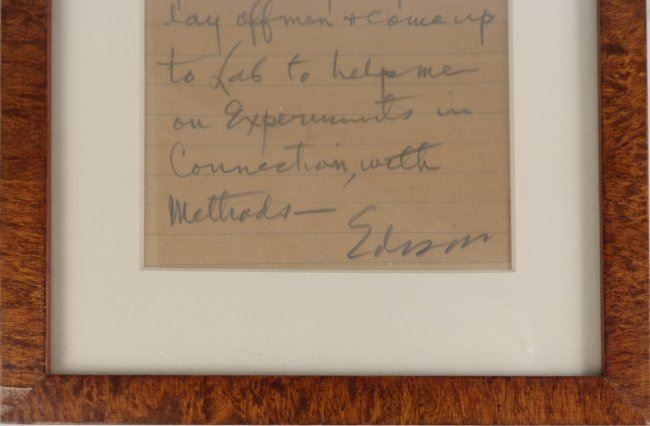 lay off men & come up
to Lab to help me
on Experiments in
Connection, with
Methods—
Edison